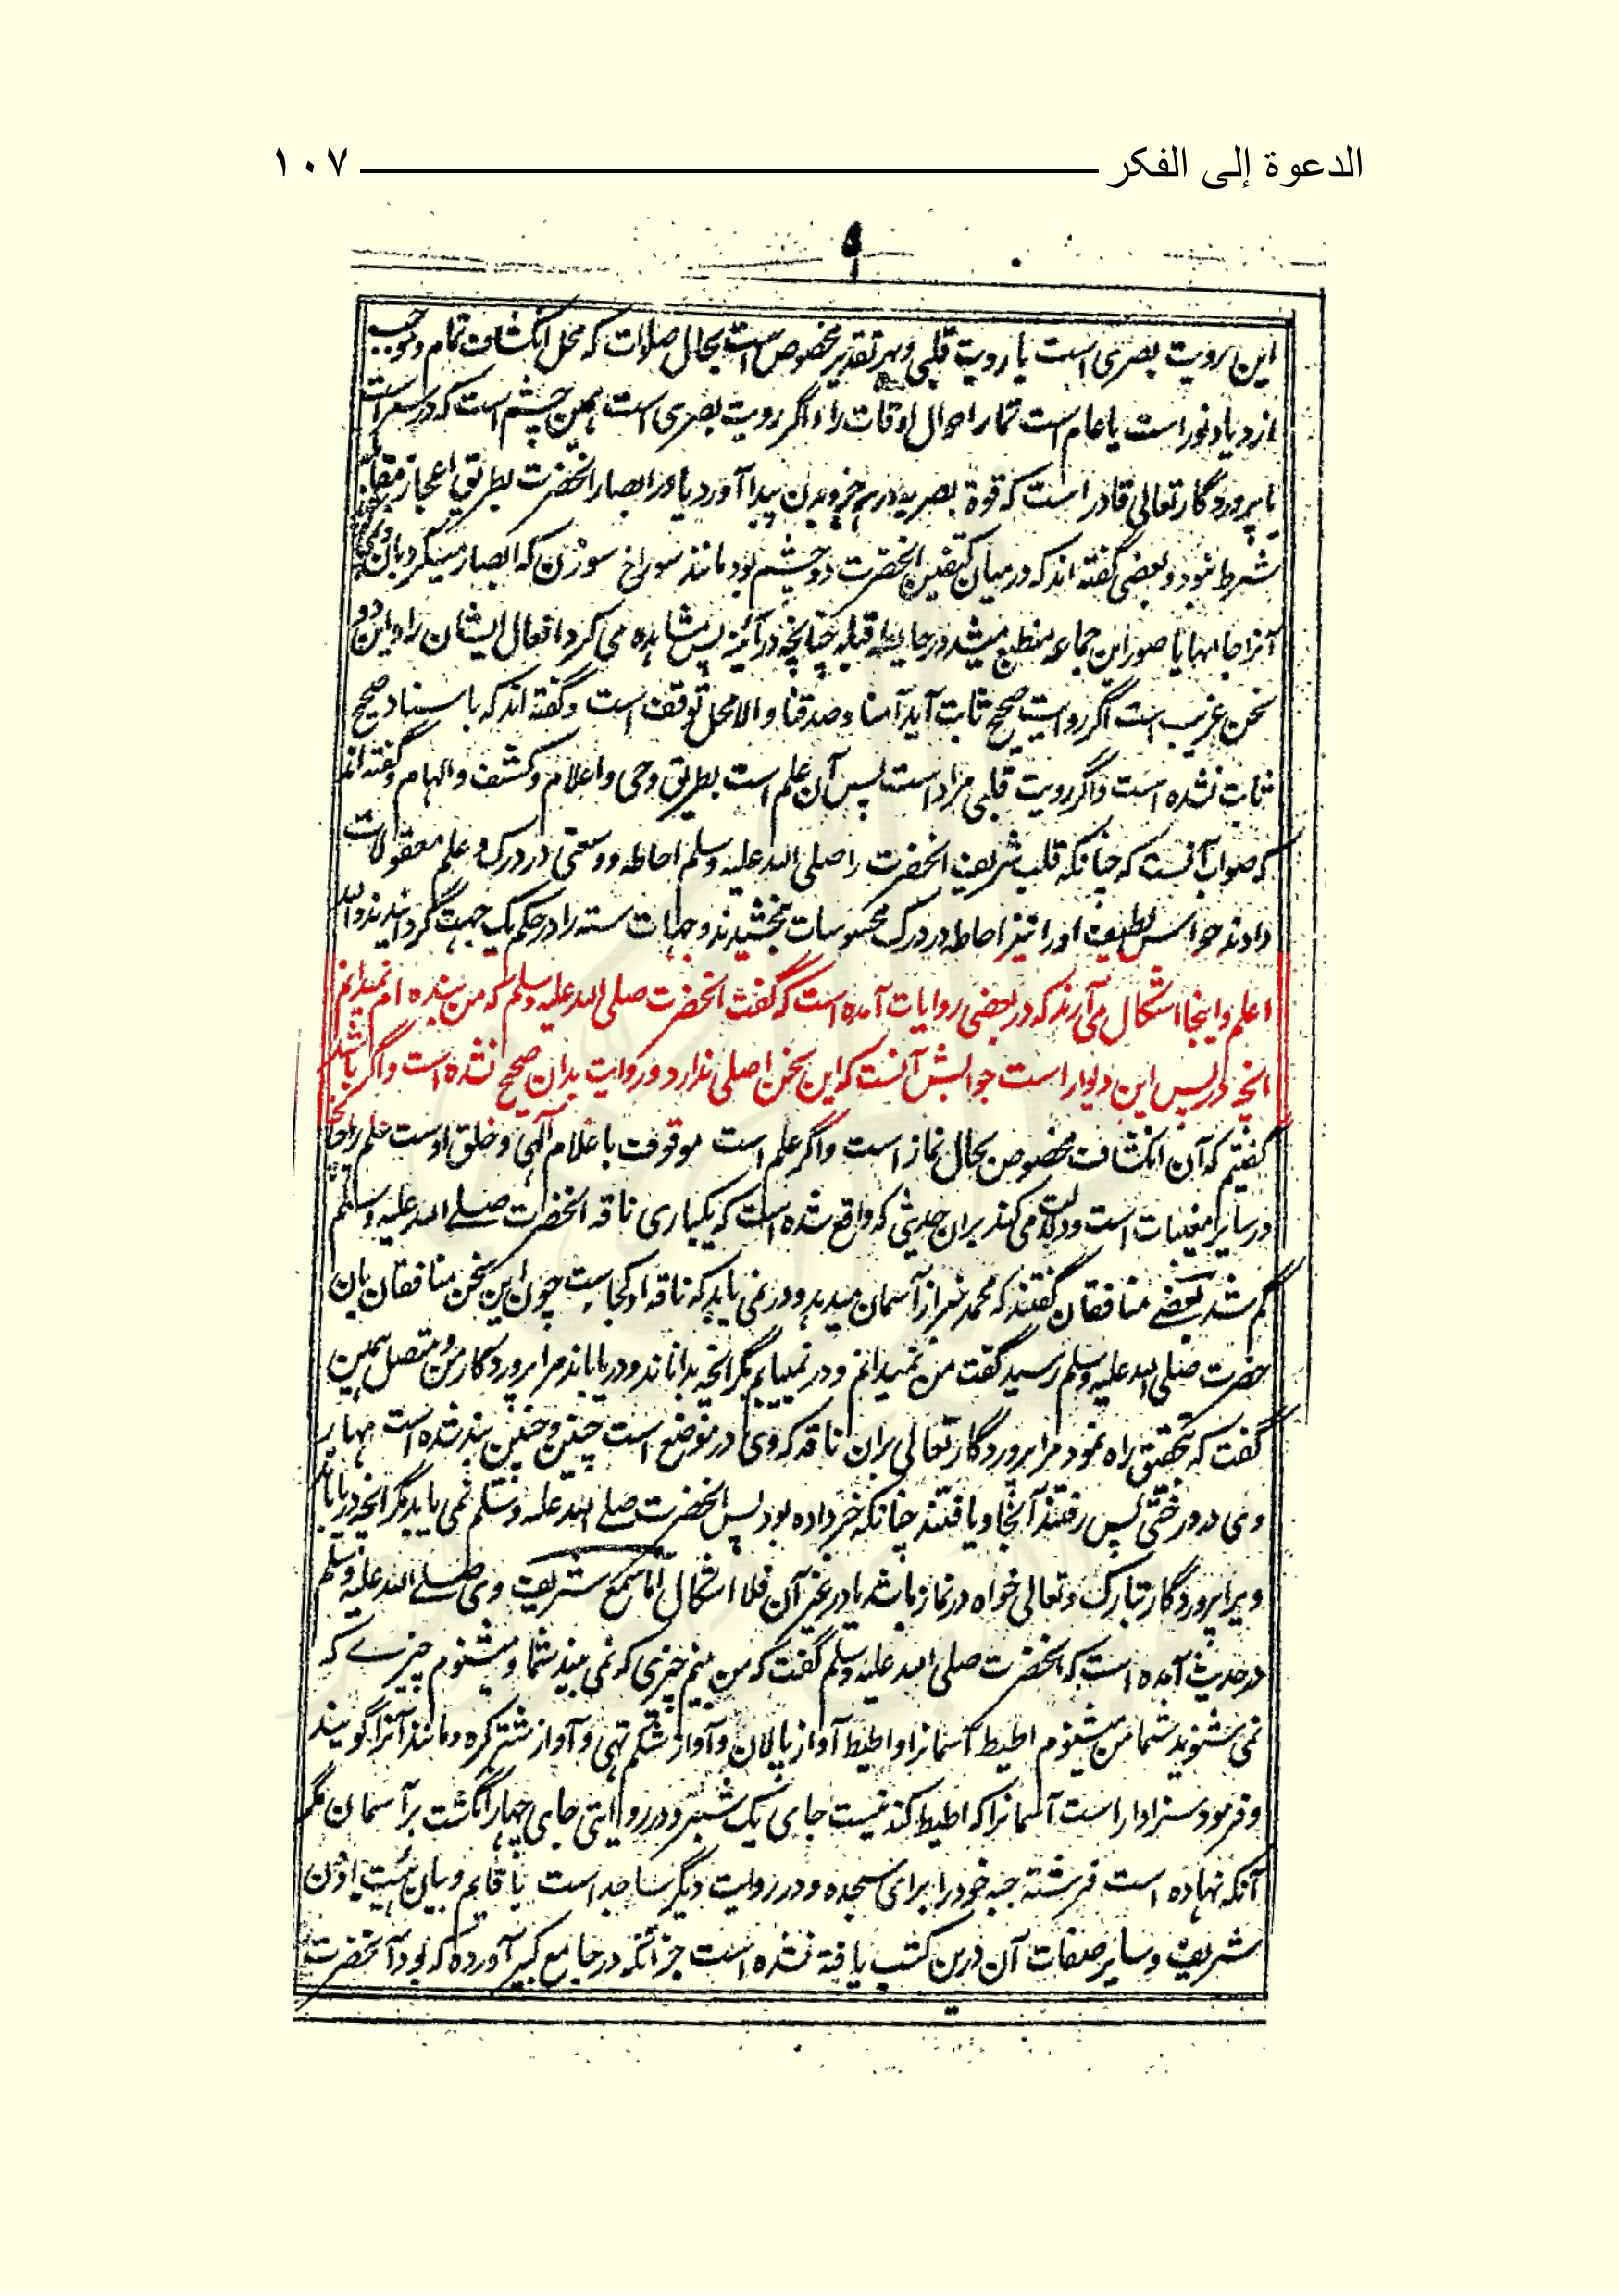 الدعوة إلى الفكر ١٠٧
٩
این رویت بصری است یا رویت قلبی و بهر تقدیر مخصوص است بحال صلوات که محل انکشاف تمام و موجب
ازدیاد نور است یا عام است تمام احوال و اوقات را و اگر رویت بصری است بهمین چشم است که در سر است
یا پروردگار تعالی قادر است که قوة بصریه در هر جزو بدن پیدا آورد یا در ابصار آنحضرت بطریق اعجاز مقابله
شرط نبود و بعضی گفته اند که در میان کتفین آنحضرت دو چشم بود مانند سوراخ سوزن که ابصار میکرد بان
آنرا جامها یا صور این جماعه منطبع میشد در حایط قبله چنانچه در آئینه پس مشاهده می کرد افعال ایشان را و این دو
سخن غریب است اگر روایت صحیح ثابت آید آمنا و صدقنا والا محل توقف است و گفته اند که باسناد صحیح
ثابت نشده است و اگر رویت قلبی مراد است پس آن علم است بطریق وحی و اعلام و کشف و الهام و گفته اند
که صواب آنست که چنانکه قلب شریف آنحضرت را صلی الله علیه وسلم احاطه و وسعتی در درک و علم معقولات
دادند حواس لطیف او را نیز احاطه در درک محسوسات بخشیدند و جهات سته را در حکم یک جهت گردانیدند والله
اعلم و اینجا اشکال می آرند که در بعضی روایات آمده است که گفت آنحضرت صلی الله علیه وسلم که من بنده ام نمیدانم
انچه در پس این دیوار است جوابش آنست که این سخن اصلی ندارد و روایت بدان صحیح نشده است و اگر باشد
گفتیم که آن انکشاف مخصوص بحال نماز است و اگر علم است موقوف باعلام الهی و خلق اوست علم را چنانچه
در سایر مغیبات است و دلالت می کند بران حدیثی که واقع شده است که یکباری ناقه آنحضرت صلی الله علیه وسلم
گم شد بعضی منافقان گفتند که محمد خبر از آسمان میدهد و در نمی یابد که ناقه او کجاست چون این سخن منافقان بان
حضرت صلی الله علیه وسلم رسید گفت من نمیدانم و در نمییابم مگر انچه بداناند و دریاباند مرا پروردگار من و متصل همین
گفت که بتحقیق راه نمود مرا پروردگار تعالی بران ناقه که وی در موضع است چنین و چنین بند شده است مهار
وی در درختی پس رفتند آنجا و یافتند چنانکه خبر داده بود پس آنحضرت صلی الله علیه وسلم نمی یابد مگر انچه دریاباند
ویرا پروردگار تبارک و تعالی خواه در نماز باشد یا در غیر آن فلا اشکال اما سمع شریف وی صلی الله علیه وسلم
در حدیث آمده است که آنحضرت صلی الله علیه وسلم گفت که من بینم چیزی که نمی بیند شما و میشنوم چیزے که
نمی شنوید شما من میشنوم اطیط آسمانرا و اطیط آواز پالان و آواز شکم تهی و آواز شتر کره و مانند آنرا گویند
و فرمود سزاوار است آسمانرا که اطیط کند نیست جای یک شبر و در روایتی جای چهار انگشت بر آسمان مگر
آنکه نهاده است فرشته جبهه خود را برای سجده و در روایت دیگر ساجد است یا قایم و بیان هیئت اذن
شریف و سایر صفات آن درین کتب یافته نشده است جز آنکه در جامع کبیر آورده که بود آنحضرت